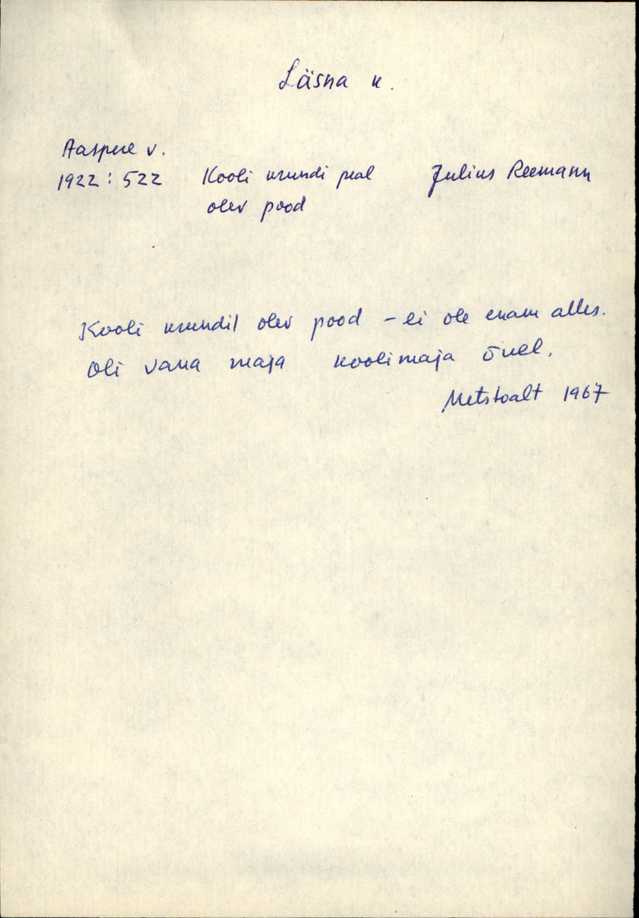 Läsna k.
Aaspere v.
1922: 522 Kooli krundi peal Julius Reemann
olev pood
Kooli krundil olev pood - ei ole enam alles.
Oli vana maja koolimaja õuel.
Metstoalt 1967